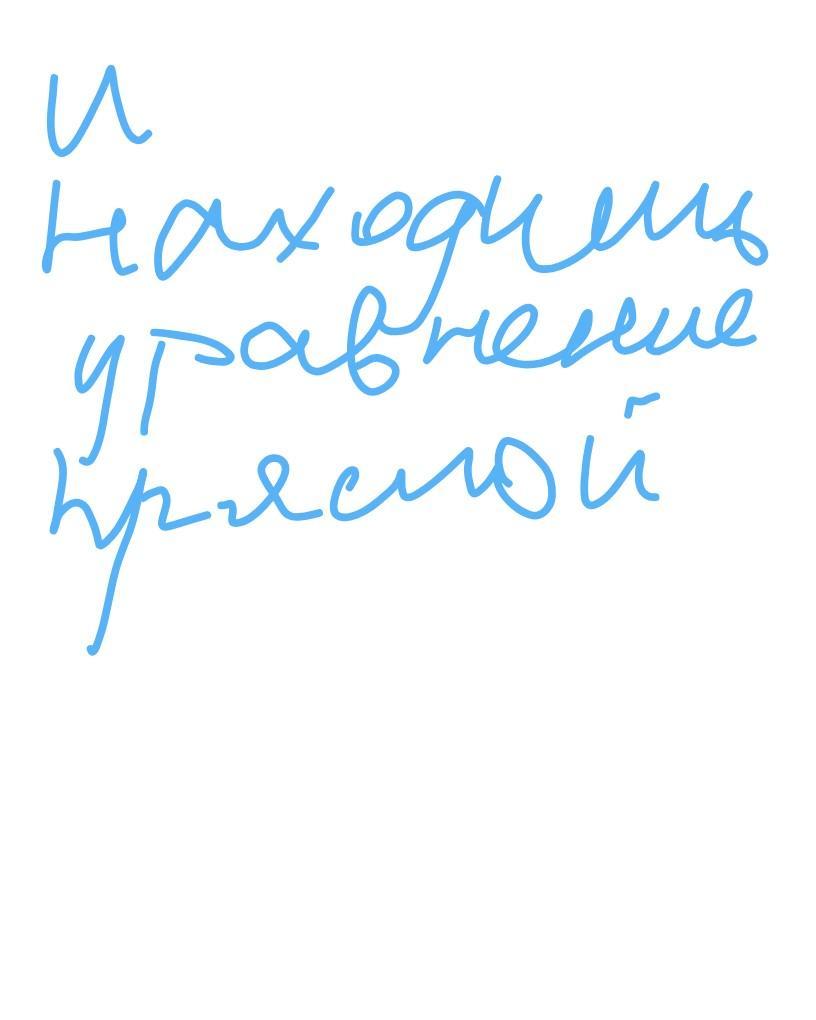 и
находишь
уравнение
прямой